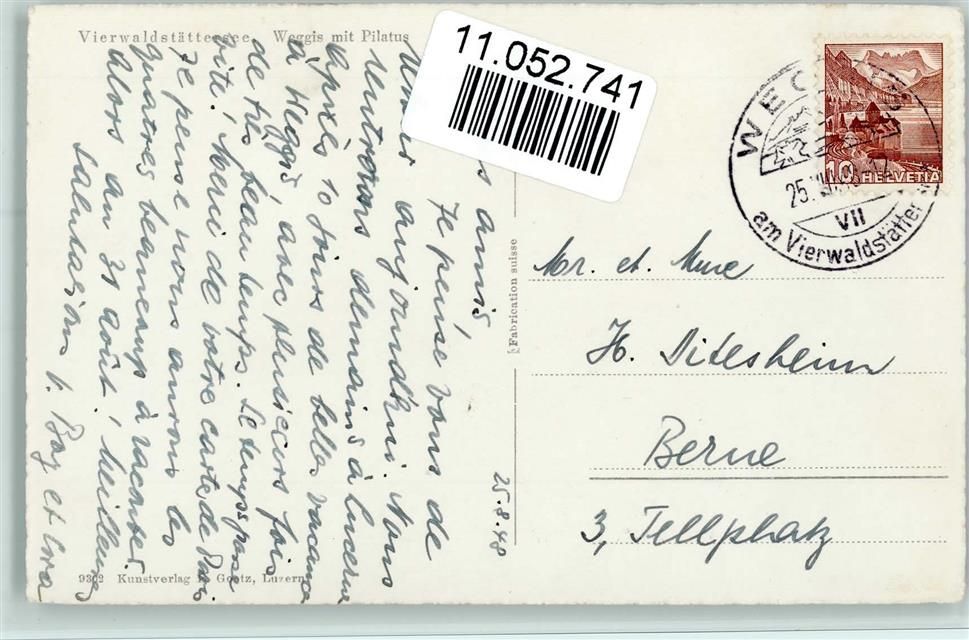 Vierwaldstättersee Weggis mit Pilatus
11.052.741
amis
Je pense vous de
aujourd'hui. Nous
rentrons demain à Lucerne
après 10 jours de belles vacances
à Weggis, avec plusieurs fois
de très beau temps. Le temps passe
vite! Merci de votre carte de
Je pense nous aurons les
quatres beaucoup à raconter.
Alors au 31 août! Meilleures
salutations
25.8.48
Fabrication suisse
9302 Kunstverlag Goetz, Luzern
Mr. et. Mme
H. Ditesheim
Berne
3, Tellplatz
10 HELVETIA
WEGGIS
25. VIII
VII
am Vierwaldstätter